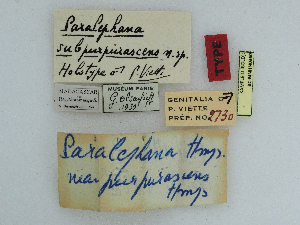 Saralephana
subpurpurascens n. sp.
Holotype ♂ P. Viette
TYPE
MADAGASCAR
MUSEUM PARIS
GENITALIA ♂
P. VIETTE
PRÉP. NO 2730
Saralephana Hmps.
near purpurascens
Hmps